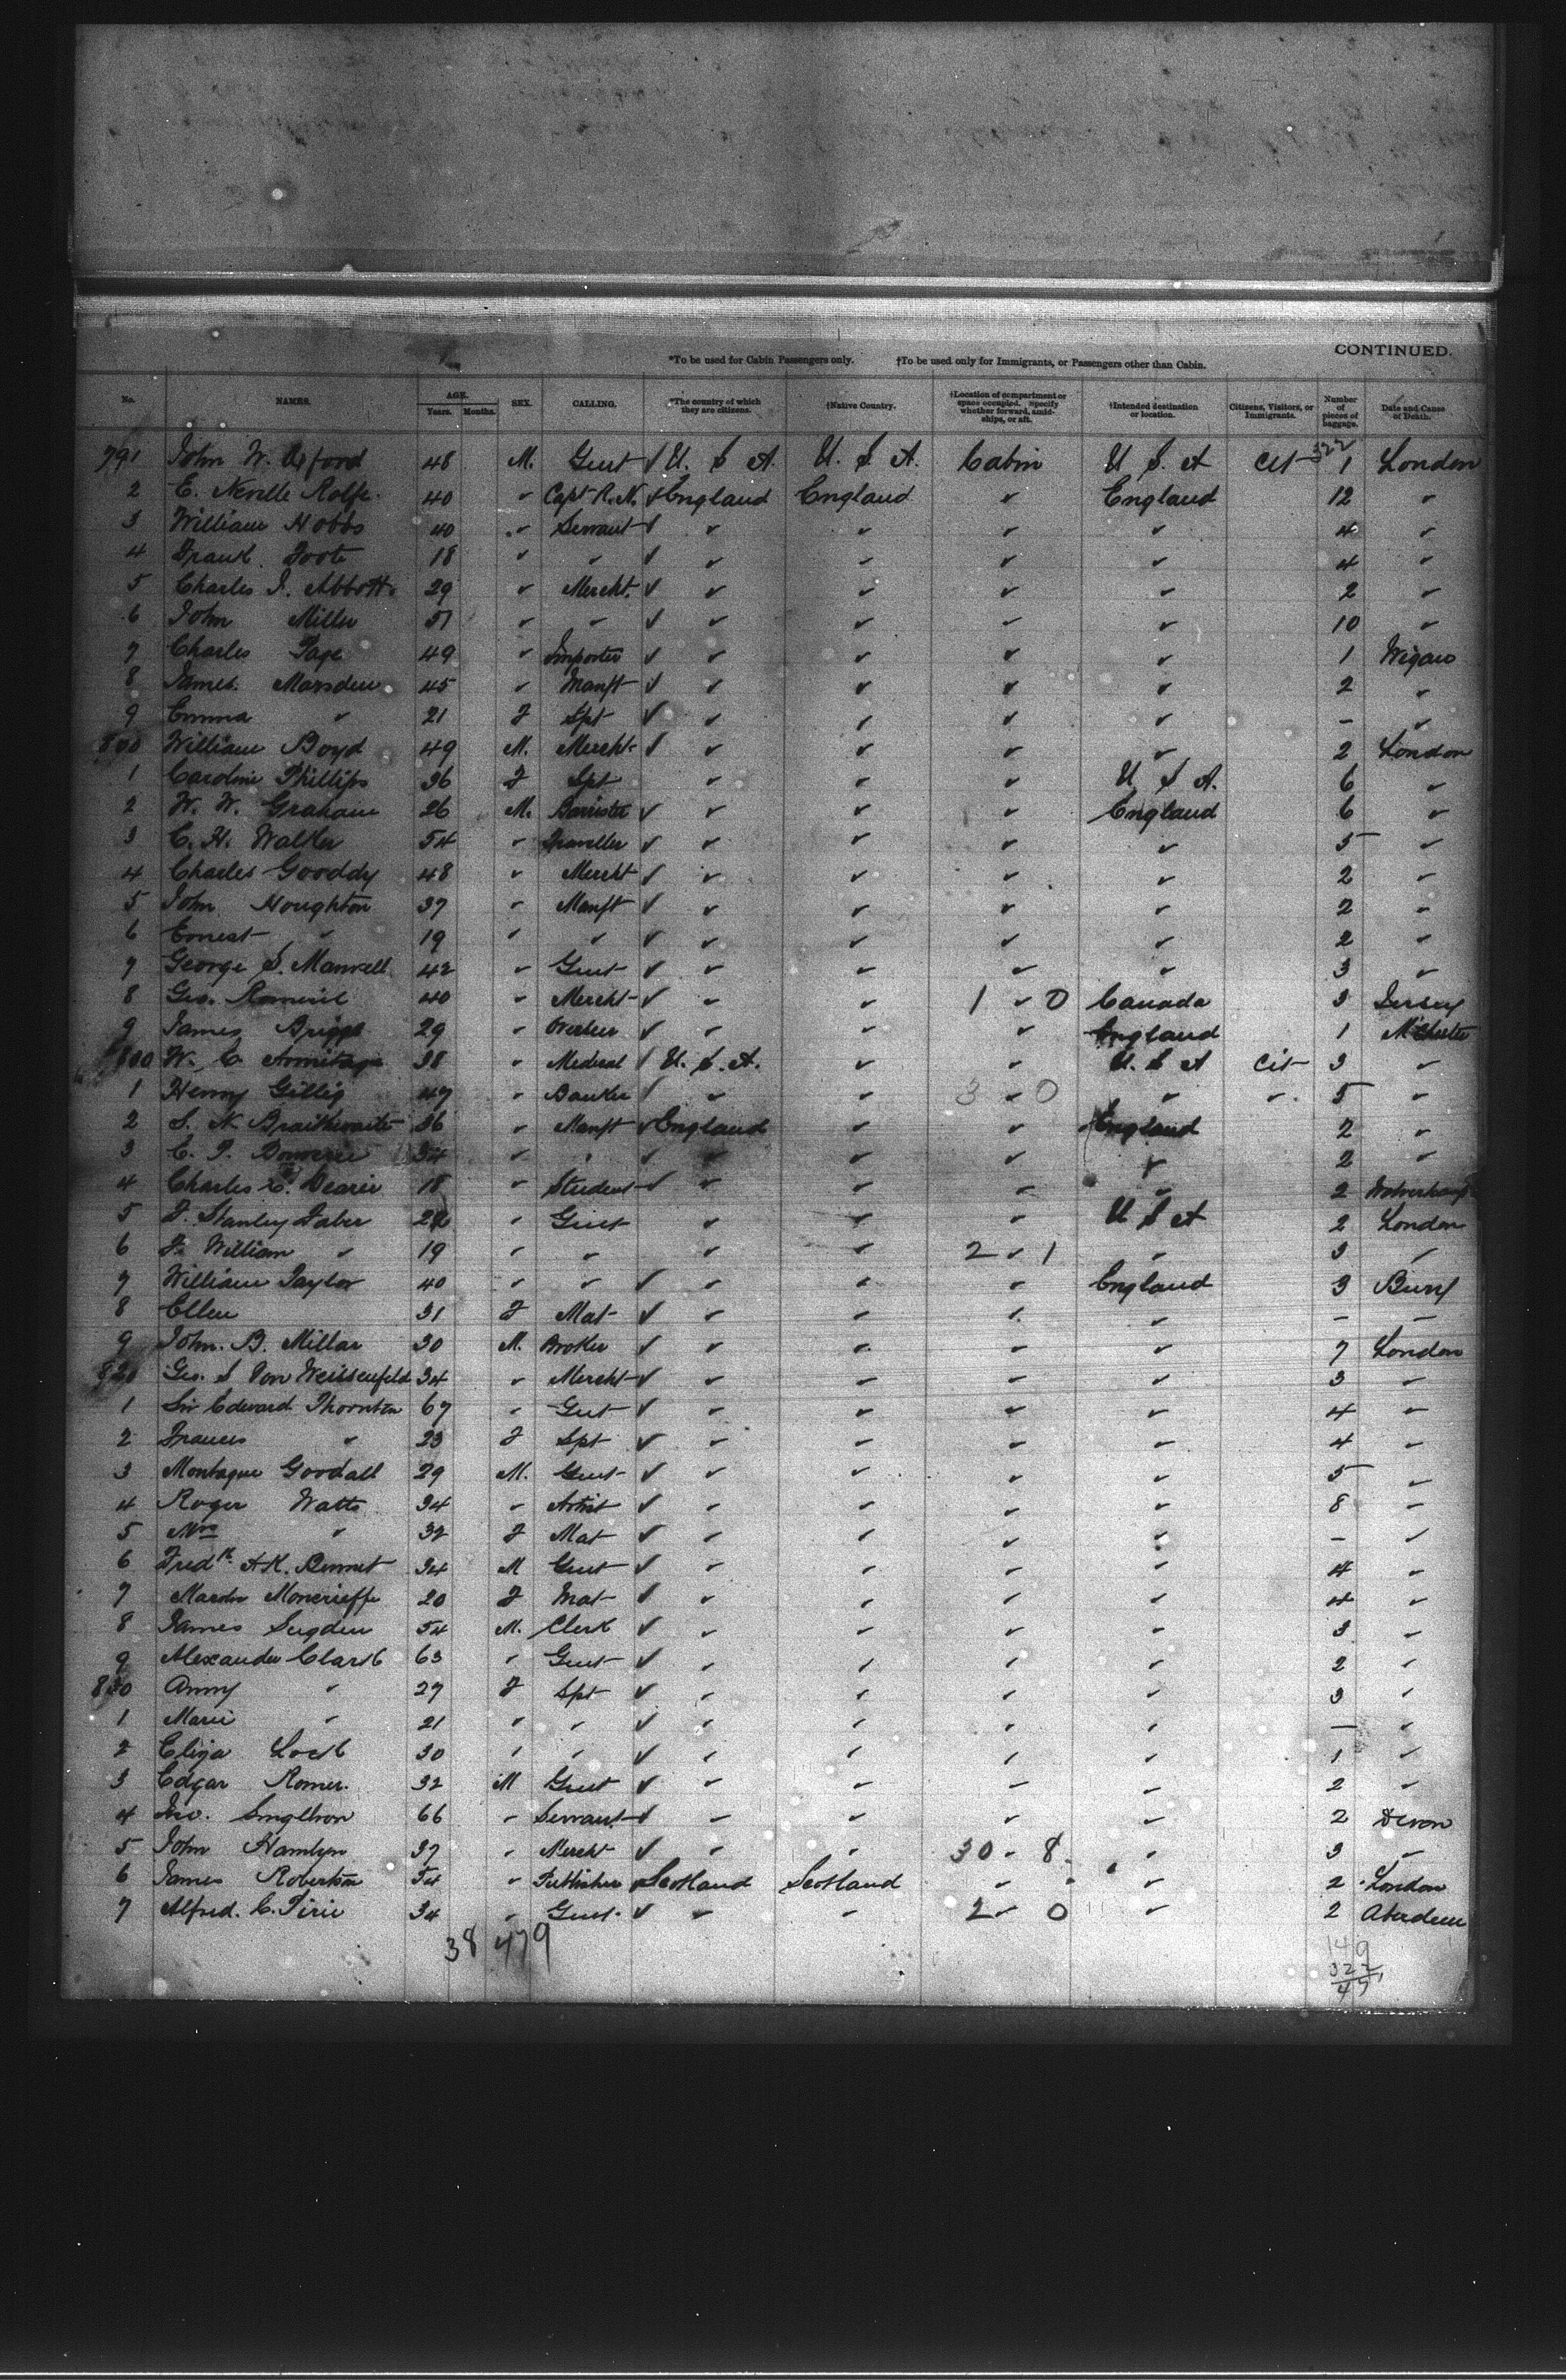 CONTINUED.
*To be used for Cabin Passengers only. †To be used only for Immigrants, or Passengers other than Cabin.
No. NAMES. AGE. Years. Months. SEX. CALLING. *The country of which they are citizens. †Native Country. †Location of compartment or space occupied. Specify whether forward, amidships, or aft. †Intended destination or location. Citizens, Visitors, or Immigrants. Number of pieces of baggage. Date and Cause of Death.
322
791 John W. 48 M. Gent ✓ U. S. A. U. S. A. Cabin U. S. A Cit 1 London
2 E. Neville Rolfe 40 " Capt R.N. ✓ England England " England 12 "
3 William Hobbs 40 " Servant ✓ " " " " 4 "
4 Frank Foote 18 " " ✓ " " " " 4 "
5 Charles J. Abbott 29 " Mercht. ✓ " " " " 2 "
6 John Miller 51 " " ✓ " " " " 10 "
7 Charles Page 49 " Importer ✓ " " " " 1 Wigan
8 James Marsden 45 " Manft ✓ " " " " 2 "
9 Emma " 21 F Spt ✓ " " " " - "
800 William Boyd 49 M. Mercht ✓ " " " " 2 London
1 Caroline Phillips 36 F Spt " " " U S A. 6 "
2 W. W. Graham 26 M. Barrister ✓ " " " England 6 "
3 C. H. Walker 54 " Traveller ✓ " " " " 5 "
4 Charles Gooddy 48 " Mercht ✓ " " " " 2 "
5 John Houghton 37 " Manft ✓ " " " " 2 "
6 Ernest " 19 " " ✓ " " " " 2 "
7 George S. Manvell 42 " Gent ✓ " " " " 3 "
8 Geo. Romeril 40 " Mercht ✓ " " 1 " 0 Canada 3 Jersey
9 James Briggs 29 " ✓ " " " England 1 M'Chester
800 W. C. Armitage 38 " Medical ✓ U. S. A. " " U. S A Cit 3 "
1 Henry Gillig 47 " Banker ✓ " " 3 " 0 " " 5 "
2 S. N. Braithwaite 36 " Manft ✓ England " " England 2 "
3 34 " " ✓ " " " " 2 "
4 Charles 18 " Student ✓ " " " " 2
5 F. Stanley Faber " Gent " " " U S A 2 London
6 F. William " 19 " " " " 2 " 1 " 3 "
7 William Taylor 40 " " ✓ " " " England 3 Bury
8 Ellen 31 F Mat ✓ " " " " - -
9 John. B. Millar 30 M. Broker ✓ " " " " 7 London
820 Geo. S Von Weissenfeld 34 " Mercht ✓ " " " " 3 "
1 Sir Edward Thornton 67 " Gent ✓ " " " " 4 "
2 Frances " 23 F Spt ✓ " " " " 4 "
3 Montague Goodall 29 M. Gent ✓ " " " " 5 "
4 Roger Watts 34 " Artist ✓ " " " " 8 "
5 Mrs " 32 F Mat ✓ " " " " - "
6 Fredk. A.K. Bennet 34 M Gent ✓ " " " " 4 "
7 Moncrieffe 20 F Mat ✓ " " " " 4 "
8 James Sugden 54 M. Clerk ✓ " " " " 3 "
9 Alexander Clark 63 " Gent ✓ " " " " 2 "
830 Anny " 27 F Spt ✓ " " " " 3 "
1 Marie " 21 " " ✓ " " " " - "
2 Eliza Lock 30 " " ✓ " " " " 1 "
3 Edgar Romer. 32 M Gent ✓ " " " " 2 "
4 66 " Servant ✓ " " " " 2 Devon
5 John Hamlyn 37 " Mercht ✓ " " 30 - 8 " 3 "
6 James Robertson 54 " Publisher ✓ Scotland Scotland " " 2 London
7 Alfred. C. Pirie 34 " Gent ✓ " " 2 - 0 " 2 Aberdeen
38 479
149
322